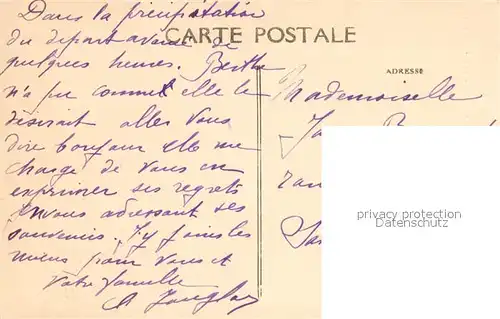 Dans la précipitation
du départ avancé de
CARTE POSTALE
quelques heures. Berthe
ADRESSE
n'a pu comme elle le
Mademoiselle
désirait aller vous
dire bonjour elle me
charge de vous en
exprimer ses regrets
en vous adressant ses
souvenirs. J'y joins les
miens pour vous et
votre famille
privacy protection
Datenschutz